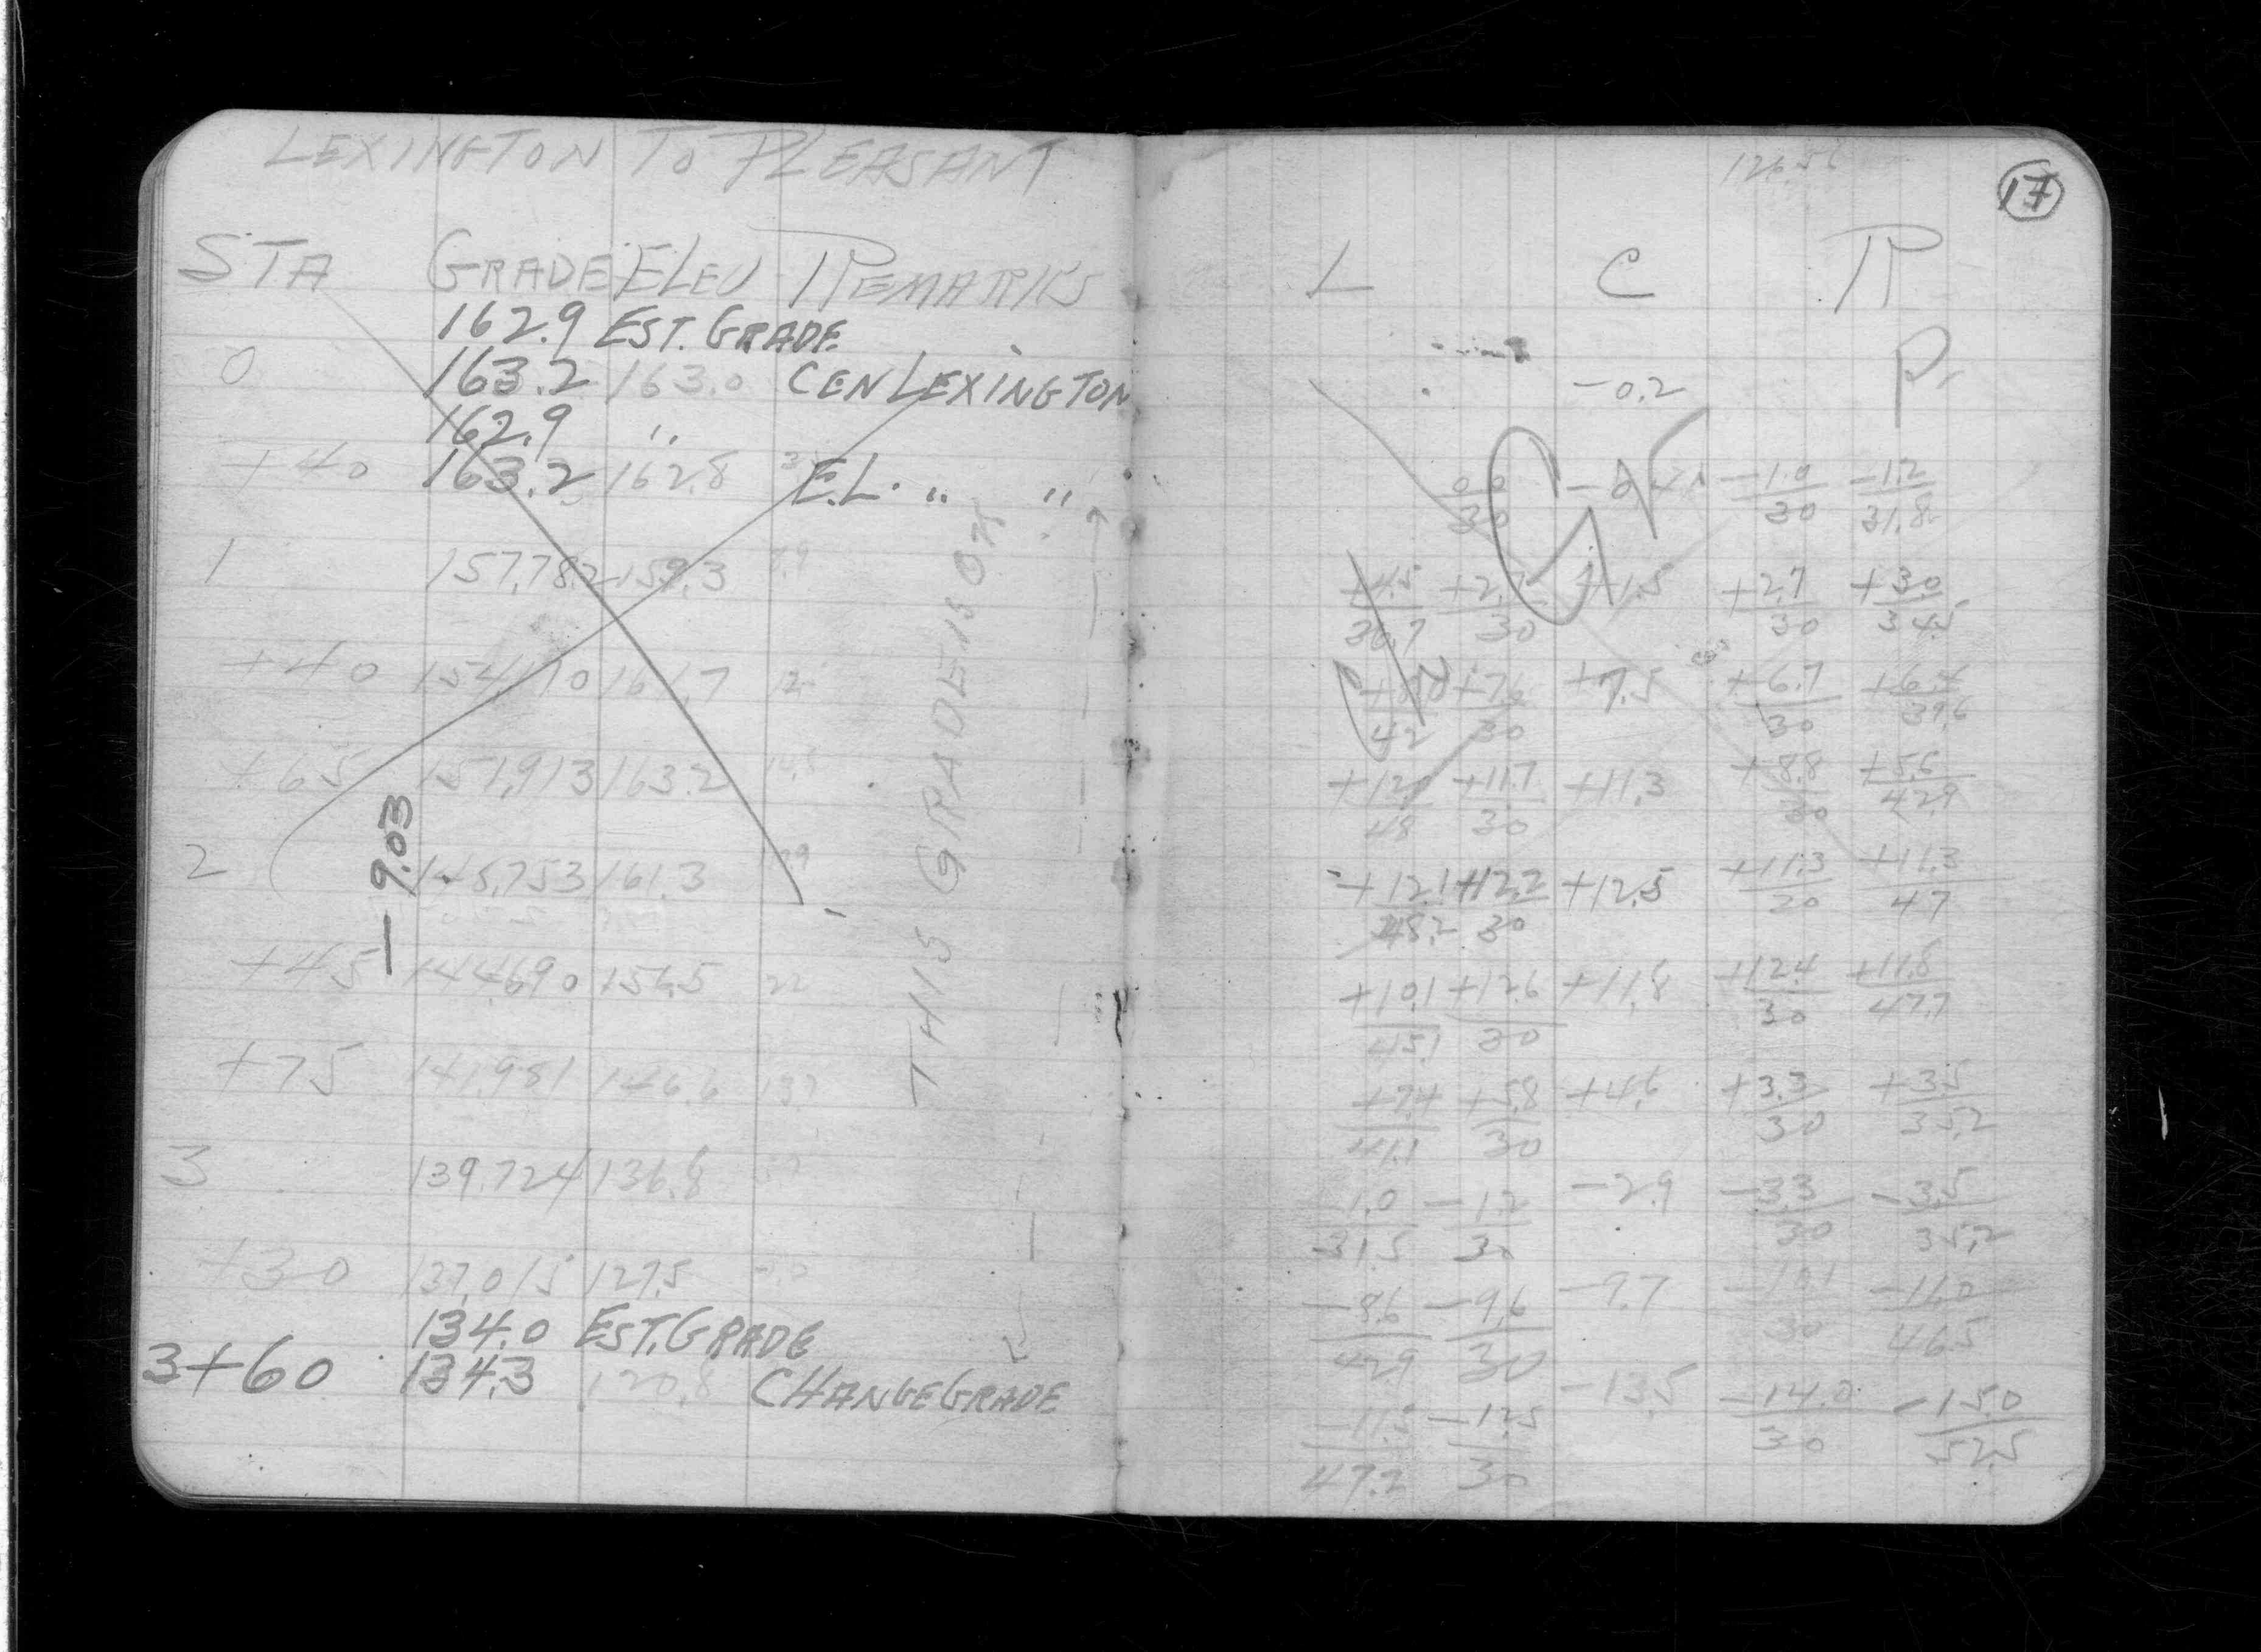 LEXINGTON TO PLEASANT
STA GRADE ELEV REMARKS
162.9 EST. GRADE
0 163.2 163.0 CEN LEXINGTON
162.9 "
+40 163.2 162.8 E.L. " "
1 157.782 159.3
+40 154.170 161.7
+65 151.913 163.2
2 148.753 161.3
+45 144.690 156.5
+75 141.981 146.6
3 139.724 136.8
+30 137.015 127.5
134.0 EST. GRADE
3+60 134.3 120.8 CHANGE GRADE
- 9.03
THIS GRADE IS OK
17
L C R
-0.2
0.0 -1.0 -1.2
30 30 31.8
+4.5 +2.7 +1.5 +2.7 +3.0
36.7 30 30 34.5
+7.6 +7.5 +6.7 +6.4
42 30 30 39.6
+12.0 +11.7 +11.3 +8.8 +5.6
48 30 30 42.9
+12.1 +12.2 +12.5 +11.3 +11.3
48.2 30 30 47
+10.1 +12.6 +11.8 +12.4 +11.8
45.1 30 30 47.7
+7.4 +5.8 +4.6 +3.3 +3.5
41.1 30 30 35.2
1.0 -1.2 -2.9 -3.3 -3.5
31.5 30 30 35.2
-8.6 -9.6 -9.7 -10.1 -11.0
42.9 30 30 46.5
-11.5 -12.5 -13.5 -14.0 -15.0
47.2 30 30 52.5